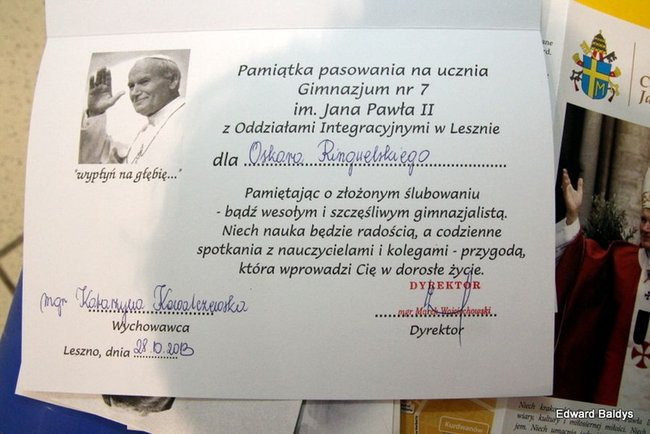 Pamiątka pasowania na ucznia
Gimnazjum nr 7
im. Jana Pawła II
z Oddziałami Integracyjnymi w Lesznie
dla Oskara Ringwelskiego
"wypłyń na głębię..."
Pamiętając o złożonym ślubowaniu
- bądź wesołym i szczęśliwym gimnazjalistą.
Niech nauka będzie radością, a codzienne
spotkania z nauczycielami i kolegami - przygodą,
która wprowadzi Cię w dorosłe życie.
mgr Katarzyna Kowalczewska
Wychowawca
Leszno, dnia 28.10.2013
DYREKTOR
mgr Marek
Dyrektor
Kurdwanów
Edward Baldys